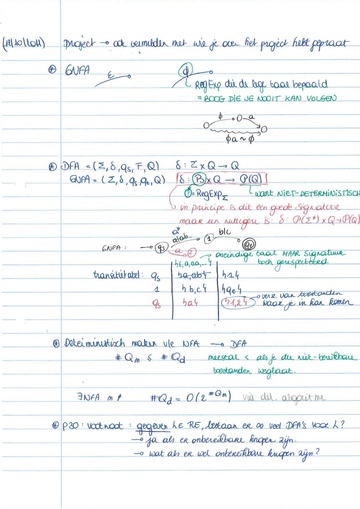 project → ook vermelden met wie je over het project hebt gepraat
GNFA
ε
ϕ
RegExp die de lege taal bepaald
= BOOG DIE JE NOOIT KAN VOLGEN
ϕ
a
ϕa ~ ϕ
DFA = (Σ, δ, qs, F, Q) δ: Σ × Q → Q
want NIET-DETERMINISTISCH
in principe is dit een goede signatuur
maar een nuttigere is: δ:
a|ab
b|c
GNFA:
qs
1
a
oneindige taal MAAR signatuur
toch gerespecteerd
transitietabel:
qs
{a,ab}
{1}
1
{b,c}
{a}
verz. van toestanden
waar je in kan komen
Deterministisch maken v/e NFA → DFA
meestal < als je die niet-bereikbare
toestanden weglaat.
∃NFA #Qd = O(2^#Qn) via det. algoritme
p30: voetnoot: gegeven L ∈ RE, bestaan er ∞ veel DFA's voor L?
→ ja als er onbereikbare knopen zijn.
→ wat als er wel onbereikbare knopen zijn?